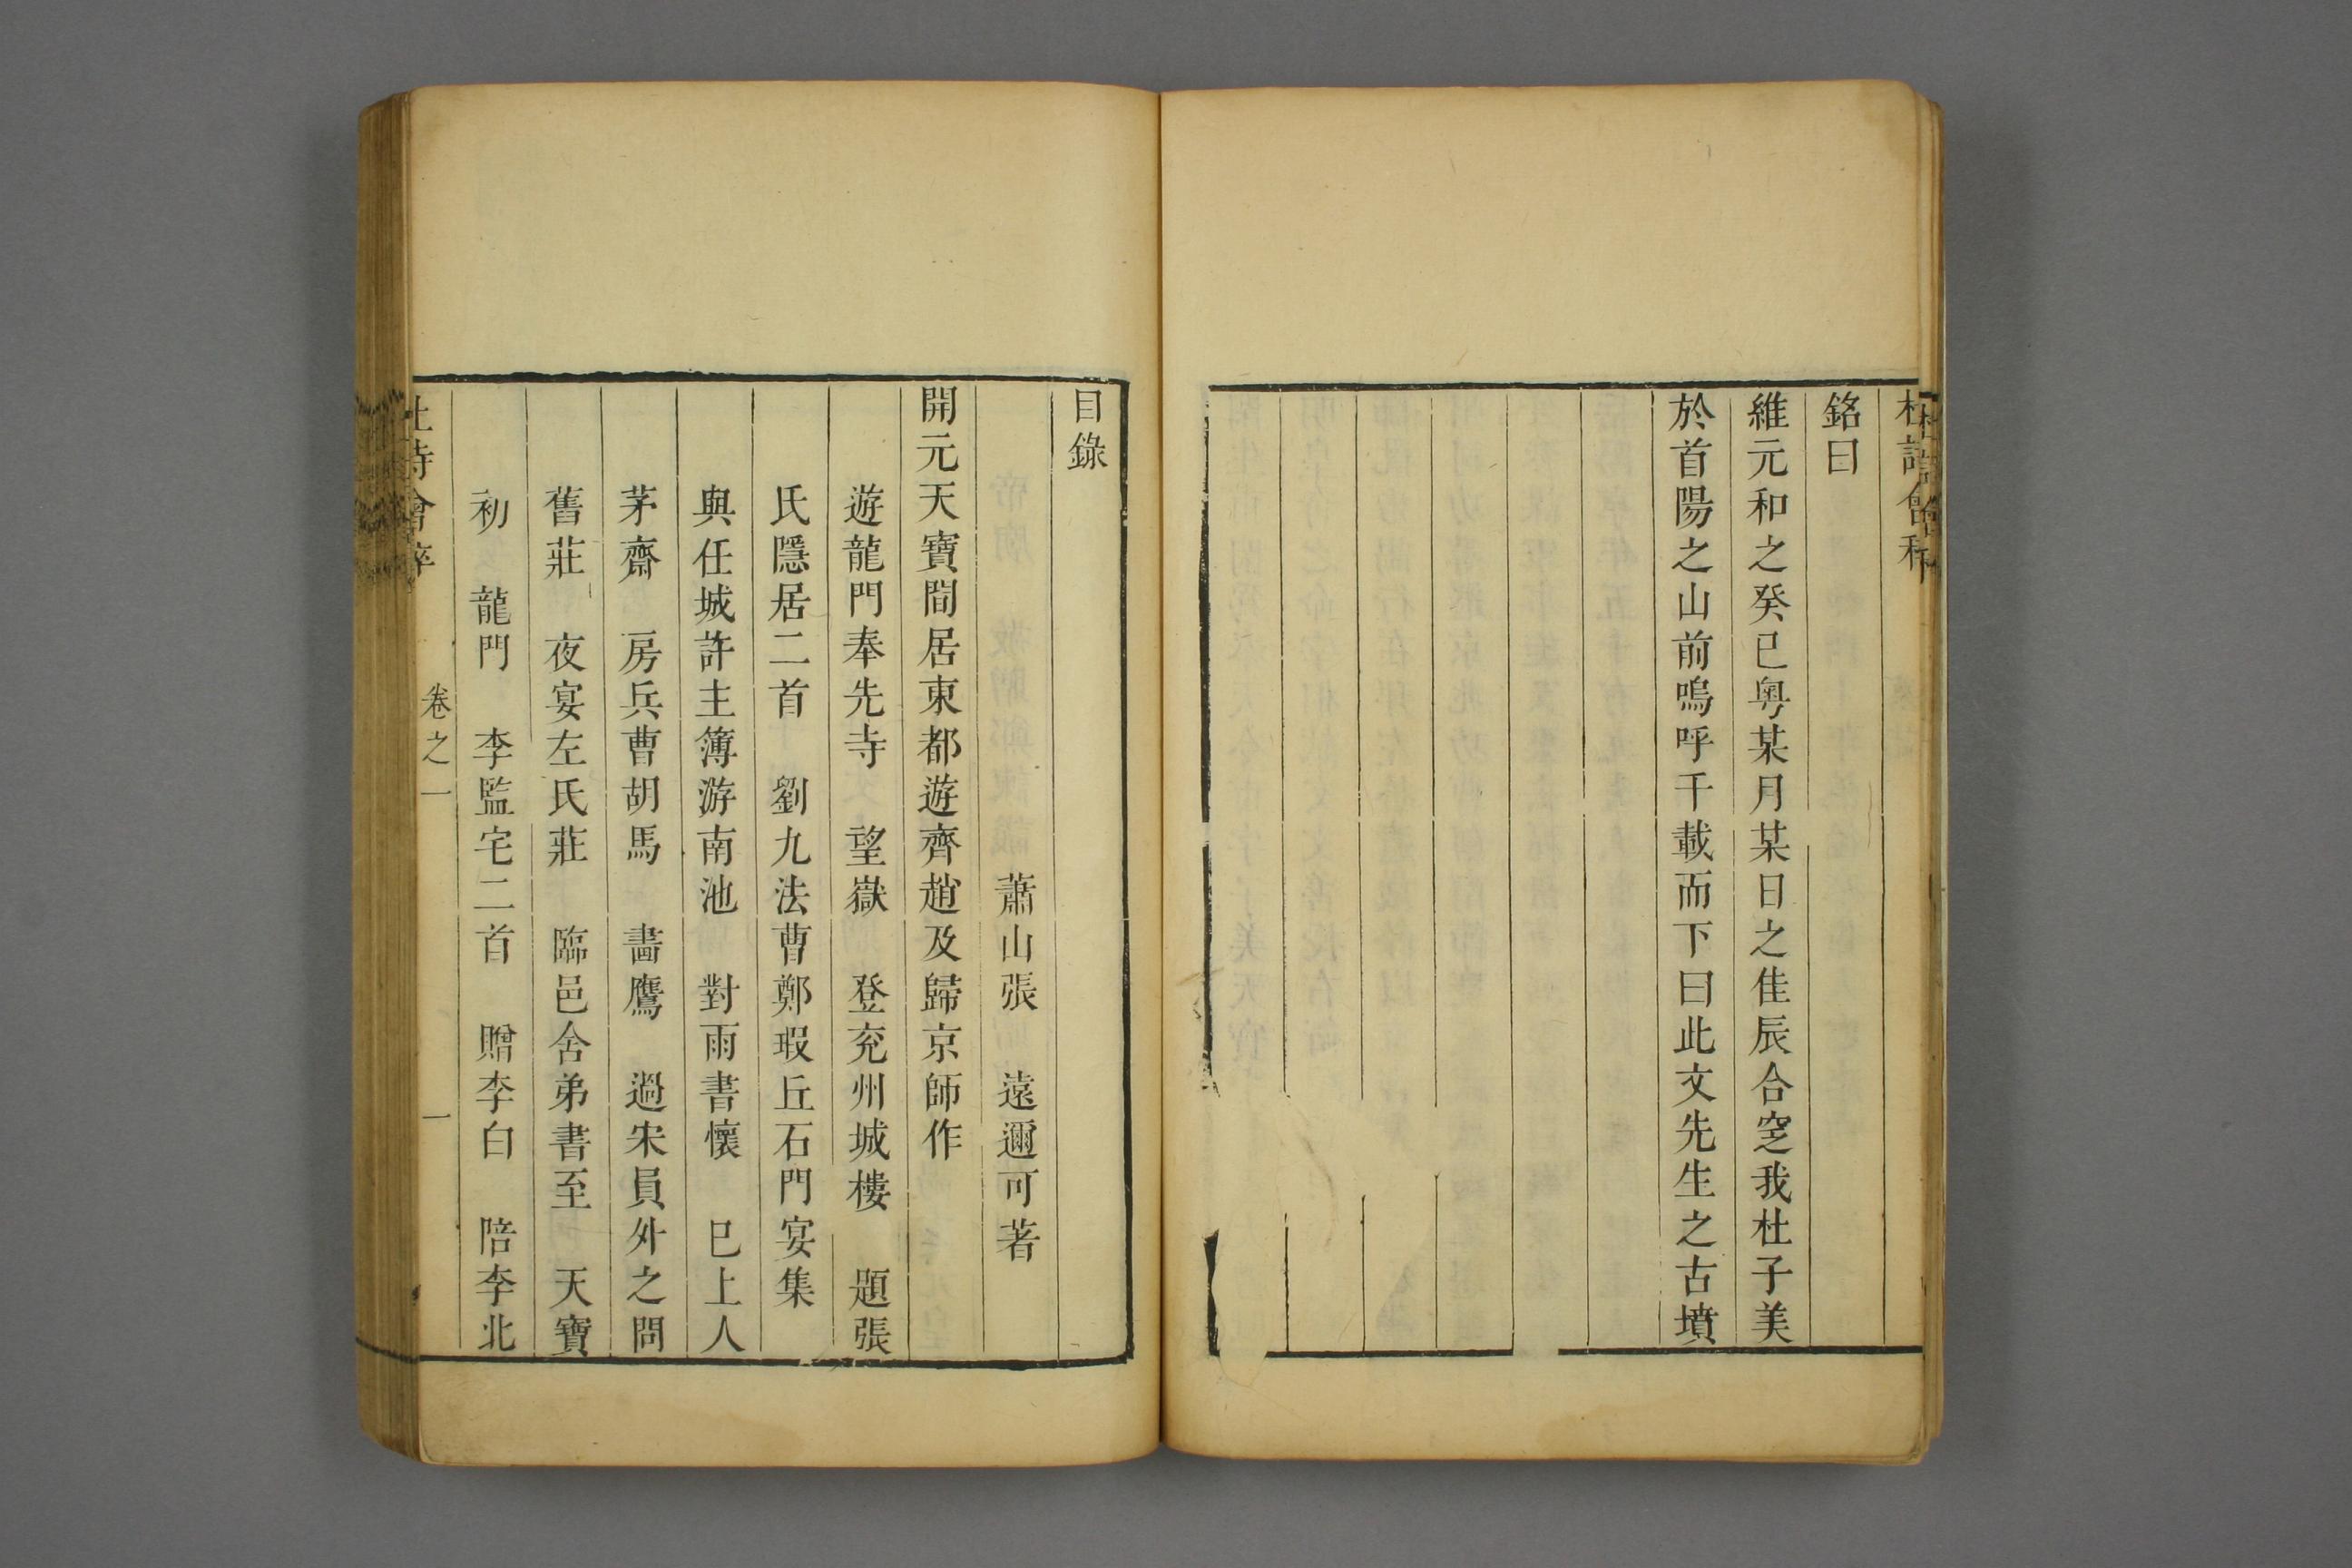 銘曰
維元和之癸巳粤某月某日之佳辰合窆我杜子美
於首陽之山前嗚呼千載而下曰此文先生之古墳
目錄
蕭山張　遠邇可著
開元天寶間居東都遊齊趙及歸京師作
遊龍門奉先寺　望嶽　登兖州城樓　題張
氏隱居二首　劉九法曹鄭瑕丘石門宴集
與任城許主簿游南池　對雨書懷　巳上人
茅齋　房兵曹胡馬　畵鷹　過宋員外之問
舊莊　夜宴左氏莊　臨邑舍弟書至　天寶
初　龍門　李監宅二首　贈李白　陪李北
杜詩會稡　卷之一　一